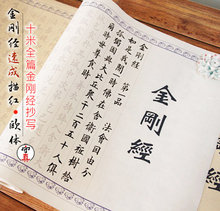 金剛经速成描红•欧体
十米全篇金刚经抄写
金剛經
金剛經 第一品 法會因由分
如是我聞一時佛在舍衛國祇樹給
孤獨園與大比丘衆千二百五十人俱